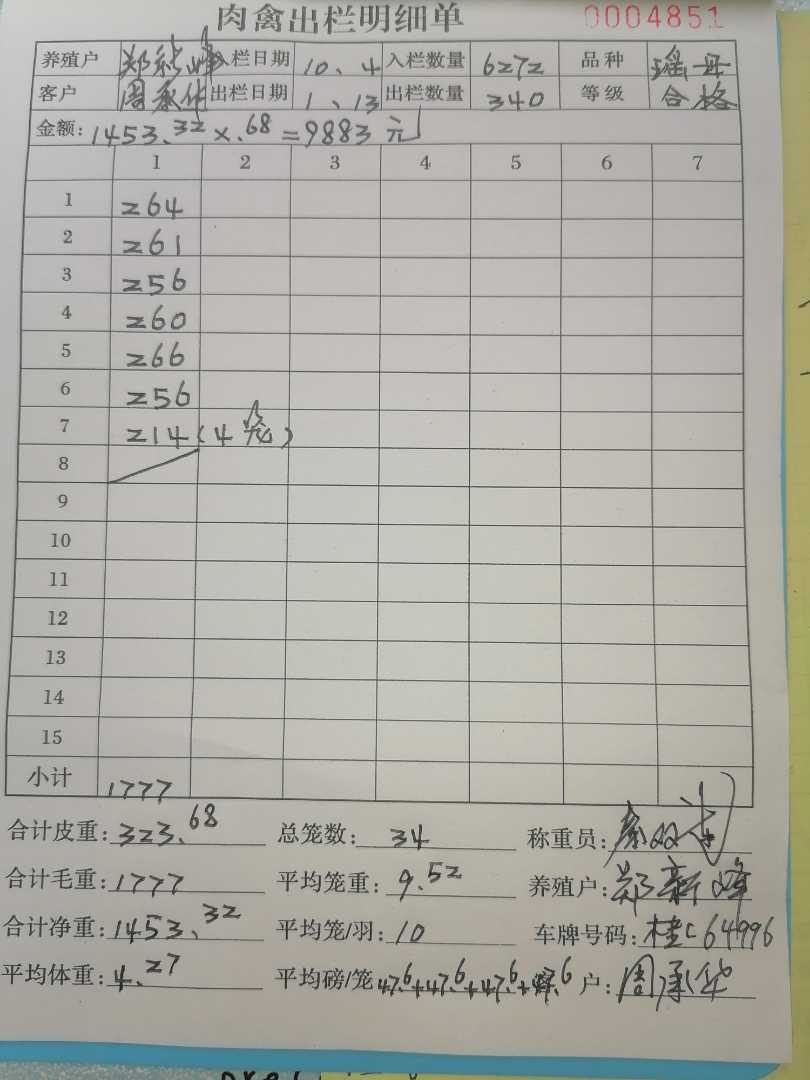 肉禽出栏明细单 0004851
养殖户 郑新峰 入栏日期 10、4 入栏数量 6272 品种 瑶丹
客户 周承华 出栏日期 1、13 出栏数量 340 等级 合格
金额: 1453.32 × .68 = 9883 元
1 2 3 4 5 6 7
1 264
2 261
3 256
4 260
5 266
6 256
7 214 (4笼)
8
9
10
11
12
13
14
15
小计 1777
合计皮重: 323.68 总笼数: 34 称重员:
合计毛重: 1777 平均笼重: 9.52 养殖户: 郑新峰
合计净重: 1453.32 平均笼/羽: 10 车牌号码: 桂C64996
平均体重: 4.27 平均磅/笼 47.6+47.6+47.6+47.6 户: 周承华